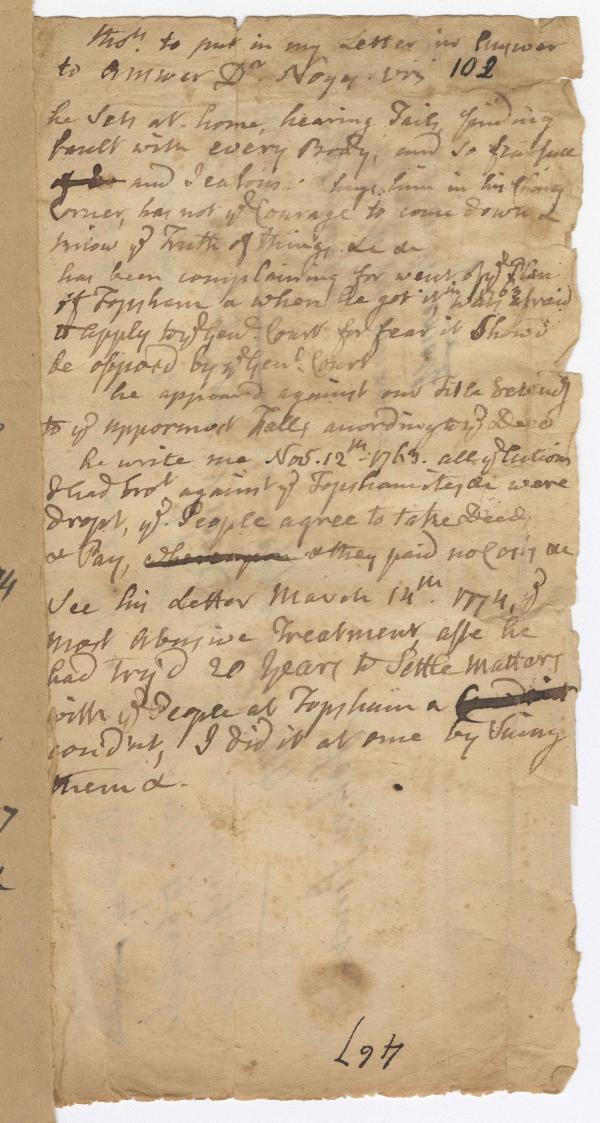 thots. to put in my Letter in Answer
to Answer Dr. Noyes. viz 102
he Sets at home, hearing Tails, finding
fault with every Body, and so fearfull
and Jealous. hugs him in his Chimy
Corner, has not ye Courage to come down &
know ye Truth of things &c &c
has been complaining for want of ye Plan
of Topsham & when he got it, was afraid
to apply to ye Genl. Court for fear it Shoud
be opposd by ye Genl. Court
he appeard against our Title Extendg
to ye uppermost Falls according to ye Deed
he write me Nov. 12th. 1763. all ye Actions
I had brot against ye Topshamites &c were
dropt, ye People agree to take Deeds
& Pay, whereupon & they paid no Cost, &c
See his Letter March 14th. 1774, ye
most Abusive Treatment, after he
had try'd 20 Years to Settle Matters
with ye People at Topsham &
coud'nt, I did it at once by Suing
them &.
467